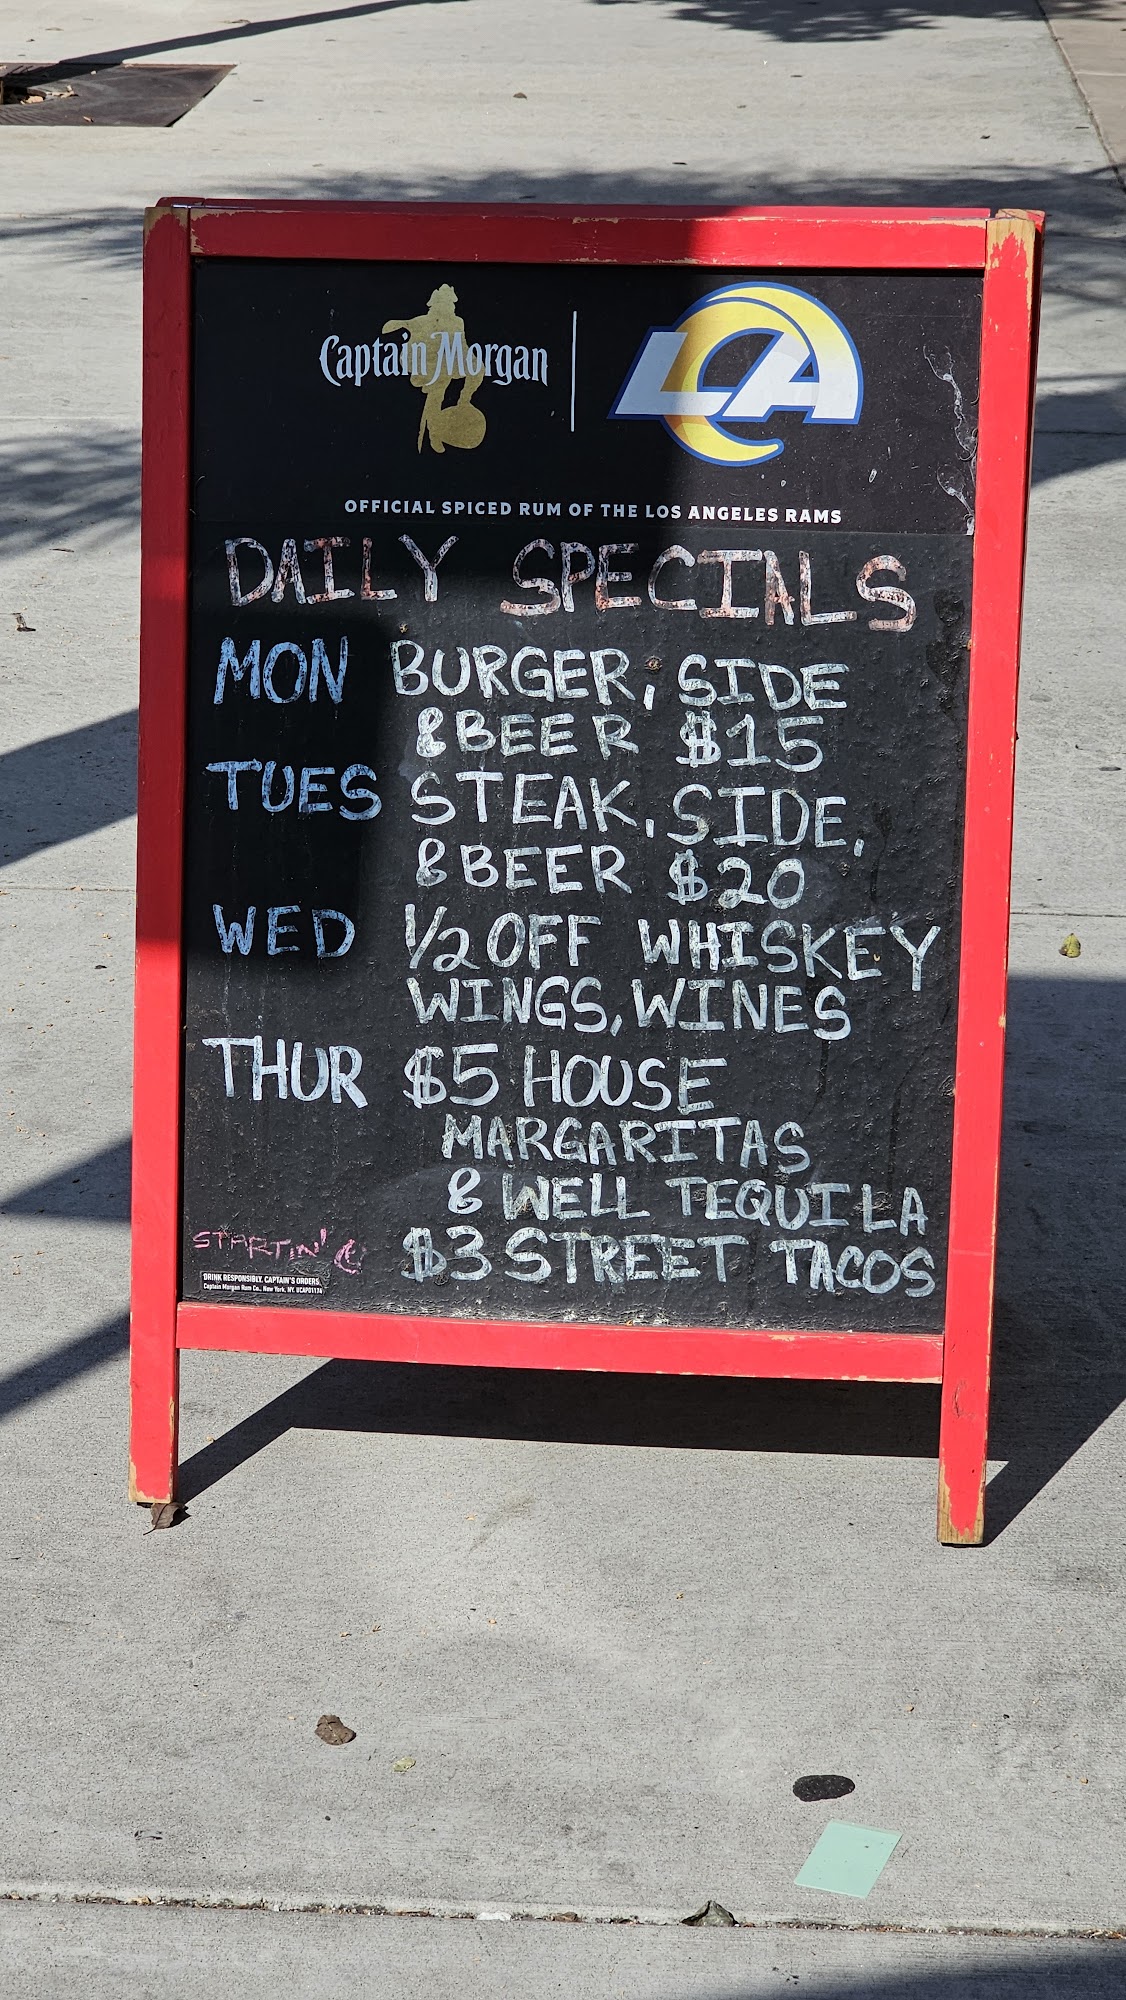 Captain Morgan
LA
OFFICIAL SPICED RUM OF THE LOS ANGELES RAMS
DAILY SPECIALS
MON BURGER, SIDE
& BEER $15
TUES STEAK, SIDE,
& BEER $20
WED 1/2 OFF WHISKEY
WINGS, WINES
THUR $5 HOUSE
MARGARITAS
& WELL TEQUILA
$3 STREET TACOS
STARTIN'
DRINK RESPONSIBLY. CAPTAIN'S ORDERS.
Captain Morgan Rum Co., New York, NY.